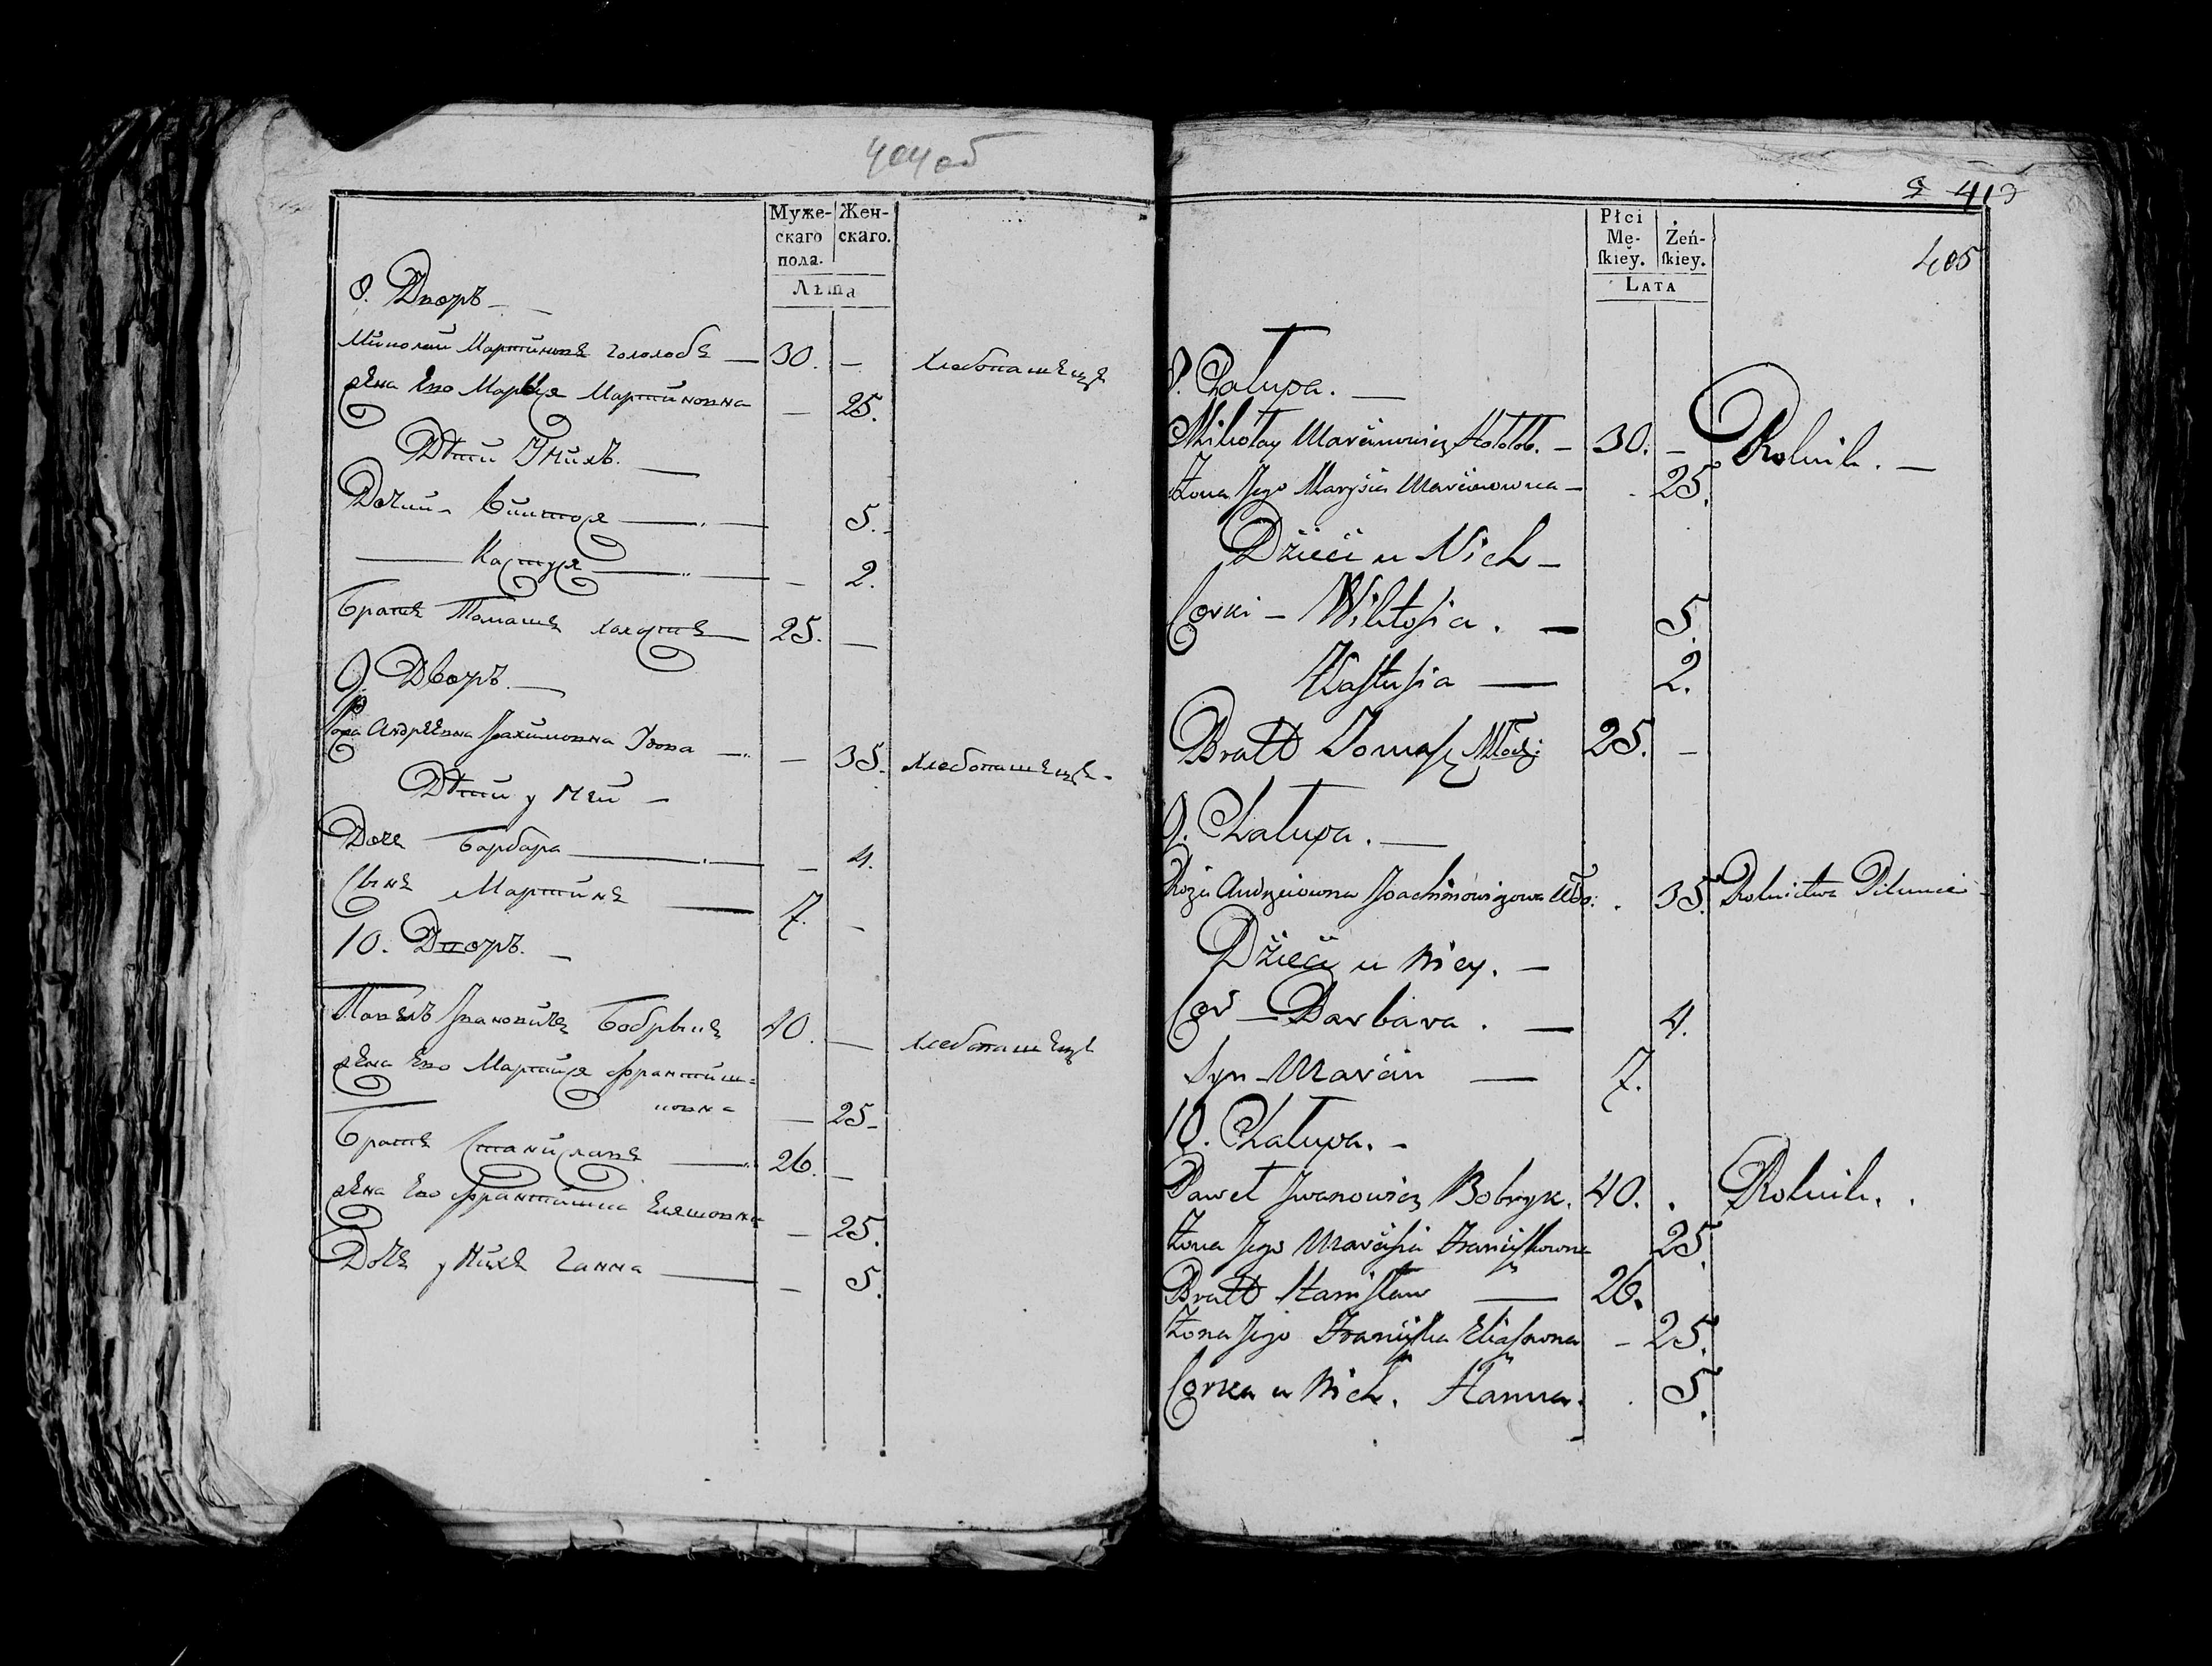 404 об
Муже-
скаго
пола.
Жен-
скаго.
Лѣта
8. Дворъ —
Миколай Мартиновъ Гололобъ — 30. — Хлебопашецъ
жена Его Марыся Мартиновна — 25.
Дѣти У нихъ. —
Дочки - Виктося — 5.
— Кастуся — — 2.
Братъ Томашъ холостъ — 25. —
9. Дворъ. —
Рожа Андрѣевна Іоахимовна Вдова — — 35. Хлебопашецъ -
Дѣти у ней —
Дочъ Барбара — — 4.
Сынъ Мартинъ — 7. —
10. Дворъ. —
Павелъ Івановичъ Бобрыкъ 40. — Хлебопашецъ
жена Его Мартися Франтиш=
ковна — 25 -
Братъ Станиславъ — 26. —
жена Его Франтишка Еляшовна — 25.
Дочъ у нихъ Ганна — — 5.
413
405
Płci
Mę-
skiey.
Żeń-
skiey.
Lata
8. Chałupa. —
Mikołay Marcinowicz Hołołob. — 30. — Rolnik. —
Żona Jego Marysia Marcinowna — . 25.
Dzieci u Nich —
Corki — Wiktosia. — 5.
Kastusia — 2.
Bratt Tomasz Młody 25. —
9. Chałupa. —
Roża Andrzeiowna Joachimowiczowa Wdo: . 35. Rolnictwa Pilnuie
Dzieci u niey. —
Cor — Barbara. — 4.
Syn — Marcin — 7.
10. Chałupa. —
Paweł Jwanowicz Bobryk. 40. . Rolnik. .
Żona Jego Marcisia Franciszkowna 25.
Bratt Stanisław — 26.
Żona Jego Franciszka Eliaszowna — 25.
Corka u nich. Hanna. . 5.